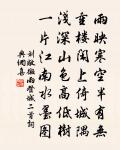 雨映寒空半有無
重樓閒上倚城隅
淺深山色高低樹
一片江南水墨圖
劉敞微雨登城二首詞
典網集